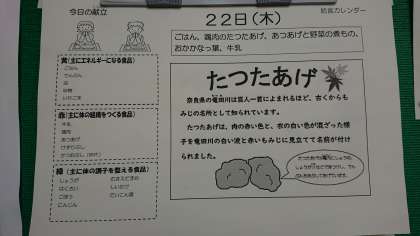 今日の献立
給食カレンダー
22日(木)
ごはん、鶏肉のたつたあげ、あつあげと野菜の煮もの、
おかかなっ葉、牛乳
黄(主にエネルギーになる食品)
ごはん
でんぷん
油
砂糖
赤(主に体の組織をつくる食品)
牛乳
鶏肉
あつあげ
緑(主に体の調子を整える食品)
しょうが
はくさい
ごぼう
にんじん
しいたけ
だいこん葉
たつたあげ
奈良県の竜田川は百人一首によまれるほど、古くからも
みじの名所として知られています。
たつたあげは、肉の赤い色と、衣の白い色が混ざった様
子を竜田川の白い波と赤いもみじに見立てて名前が付け
られました。